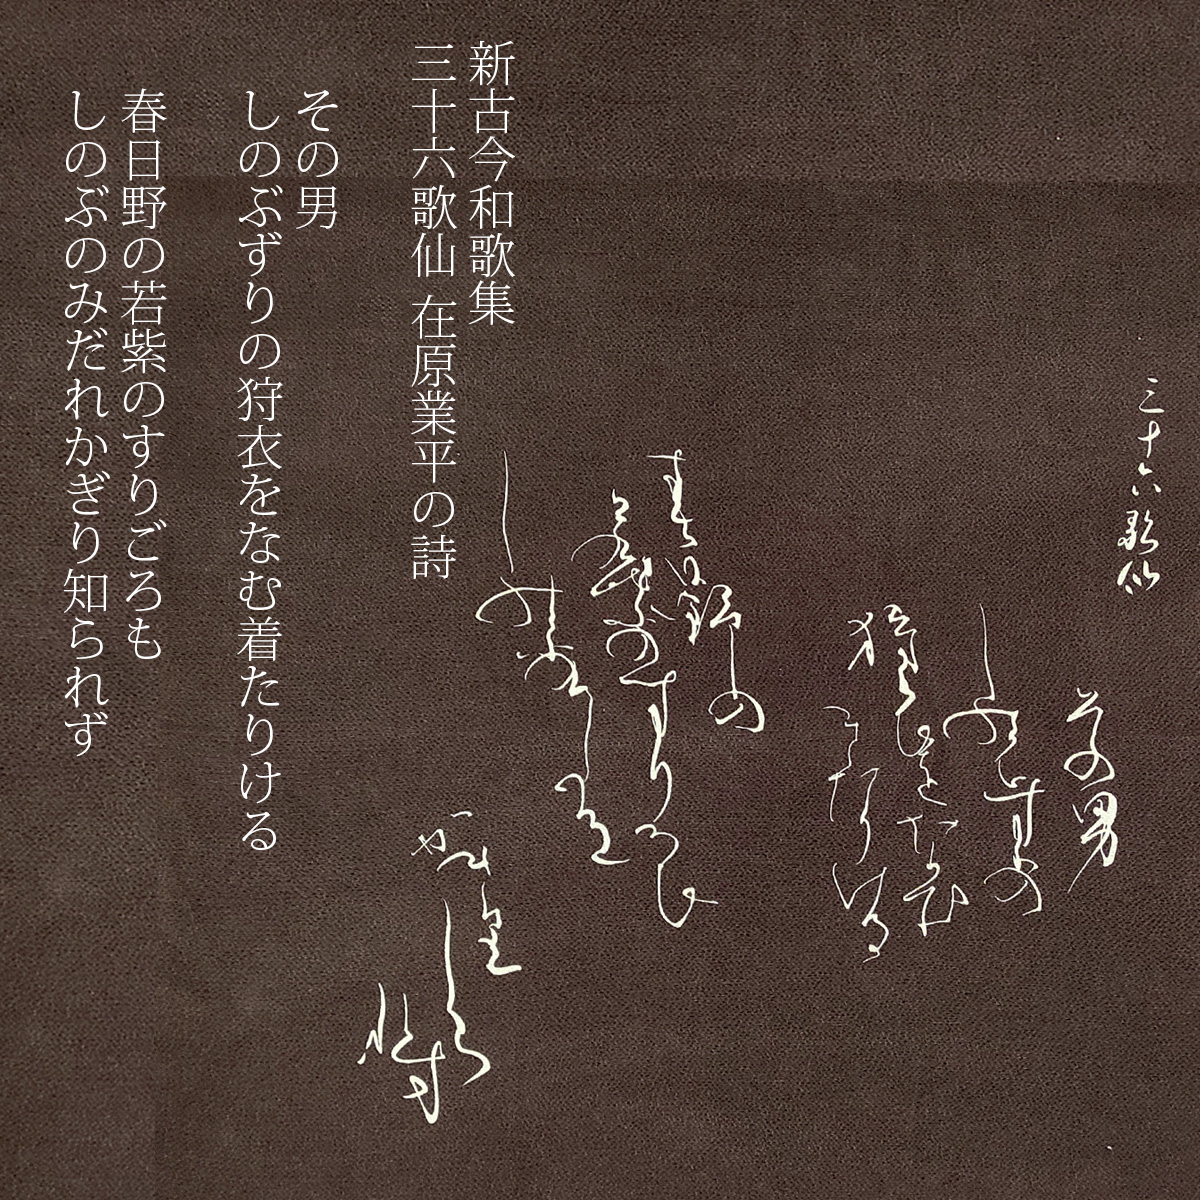 三十六歌仙
その男
しのぶずりの
狩衣をなむ
きたりける
春日野の
若紫のすりごろも
しのぶのみだれ
かぎり
しられず
新古今和歌集
三十六歌仙 在原業平の詩
その男
しのぶずりの狩衣をなむ着たりける
春日野の若紫のすりごろも
しのぶのみだれかぎり知られず